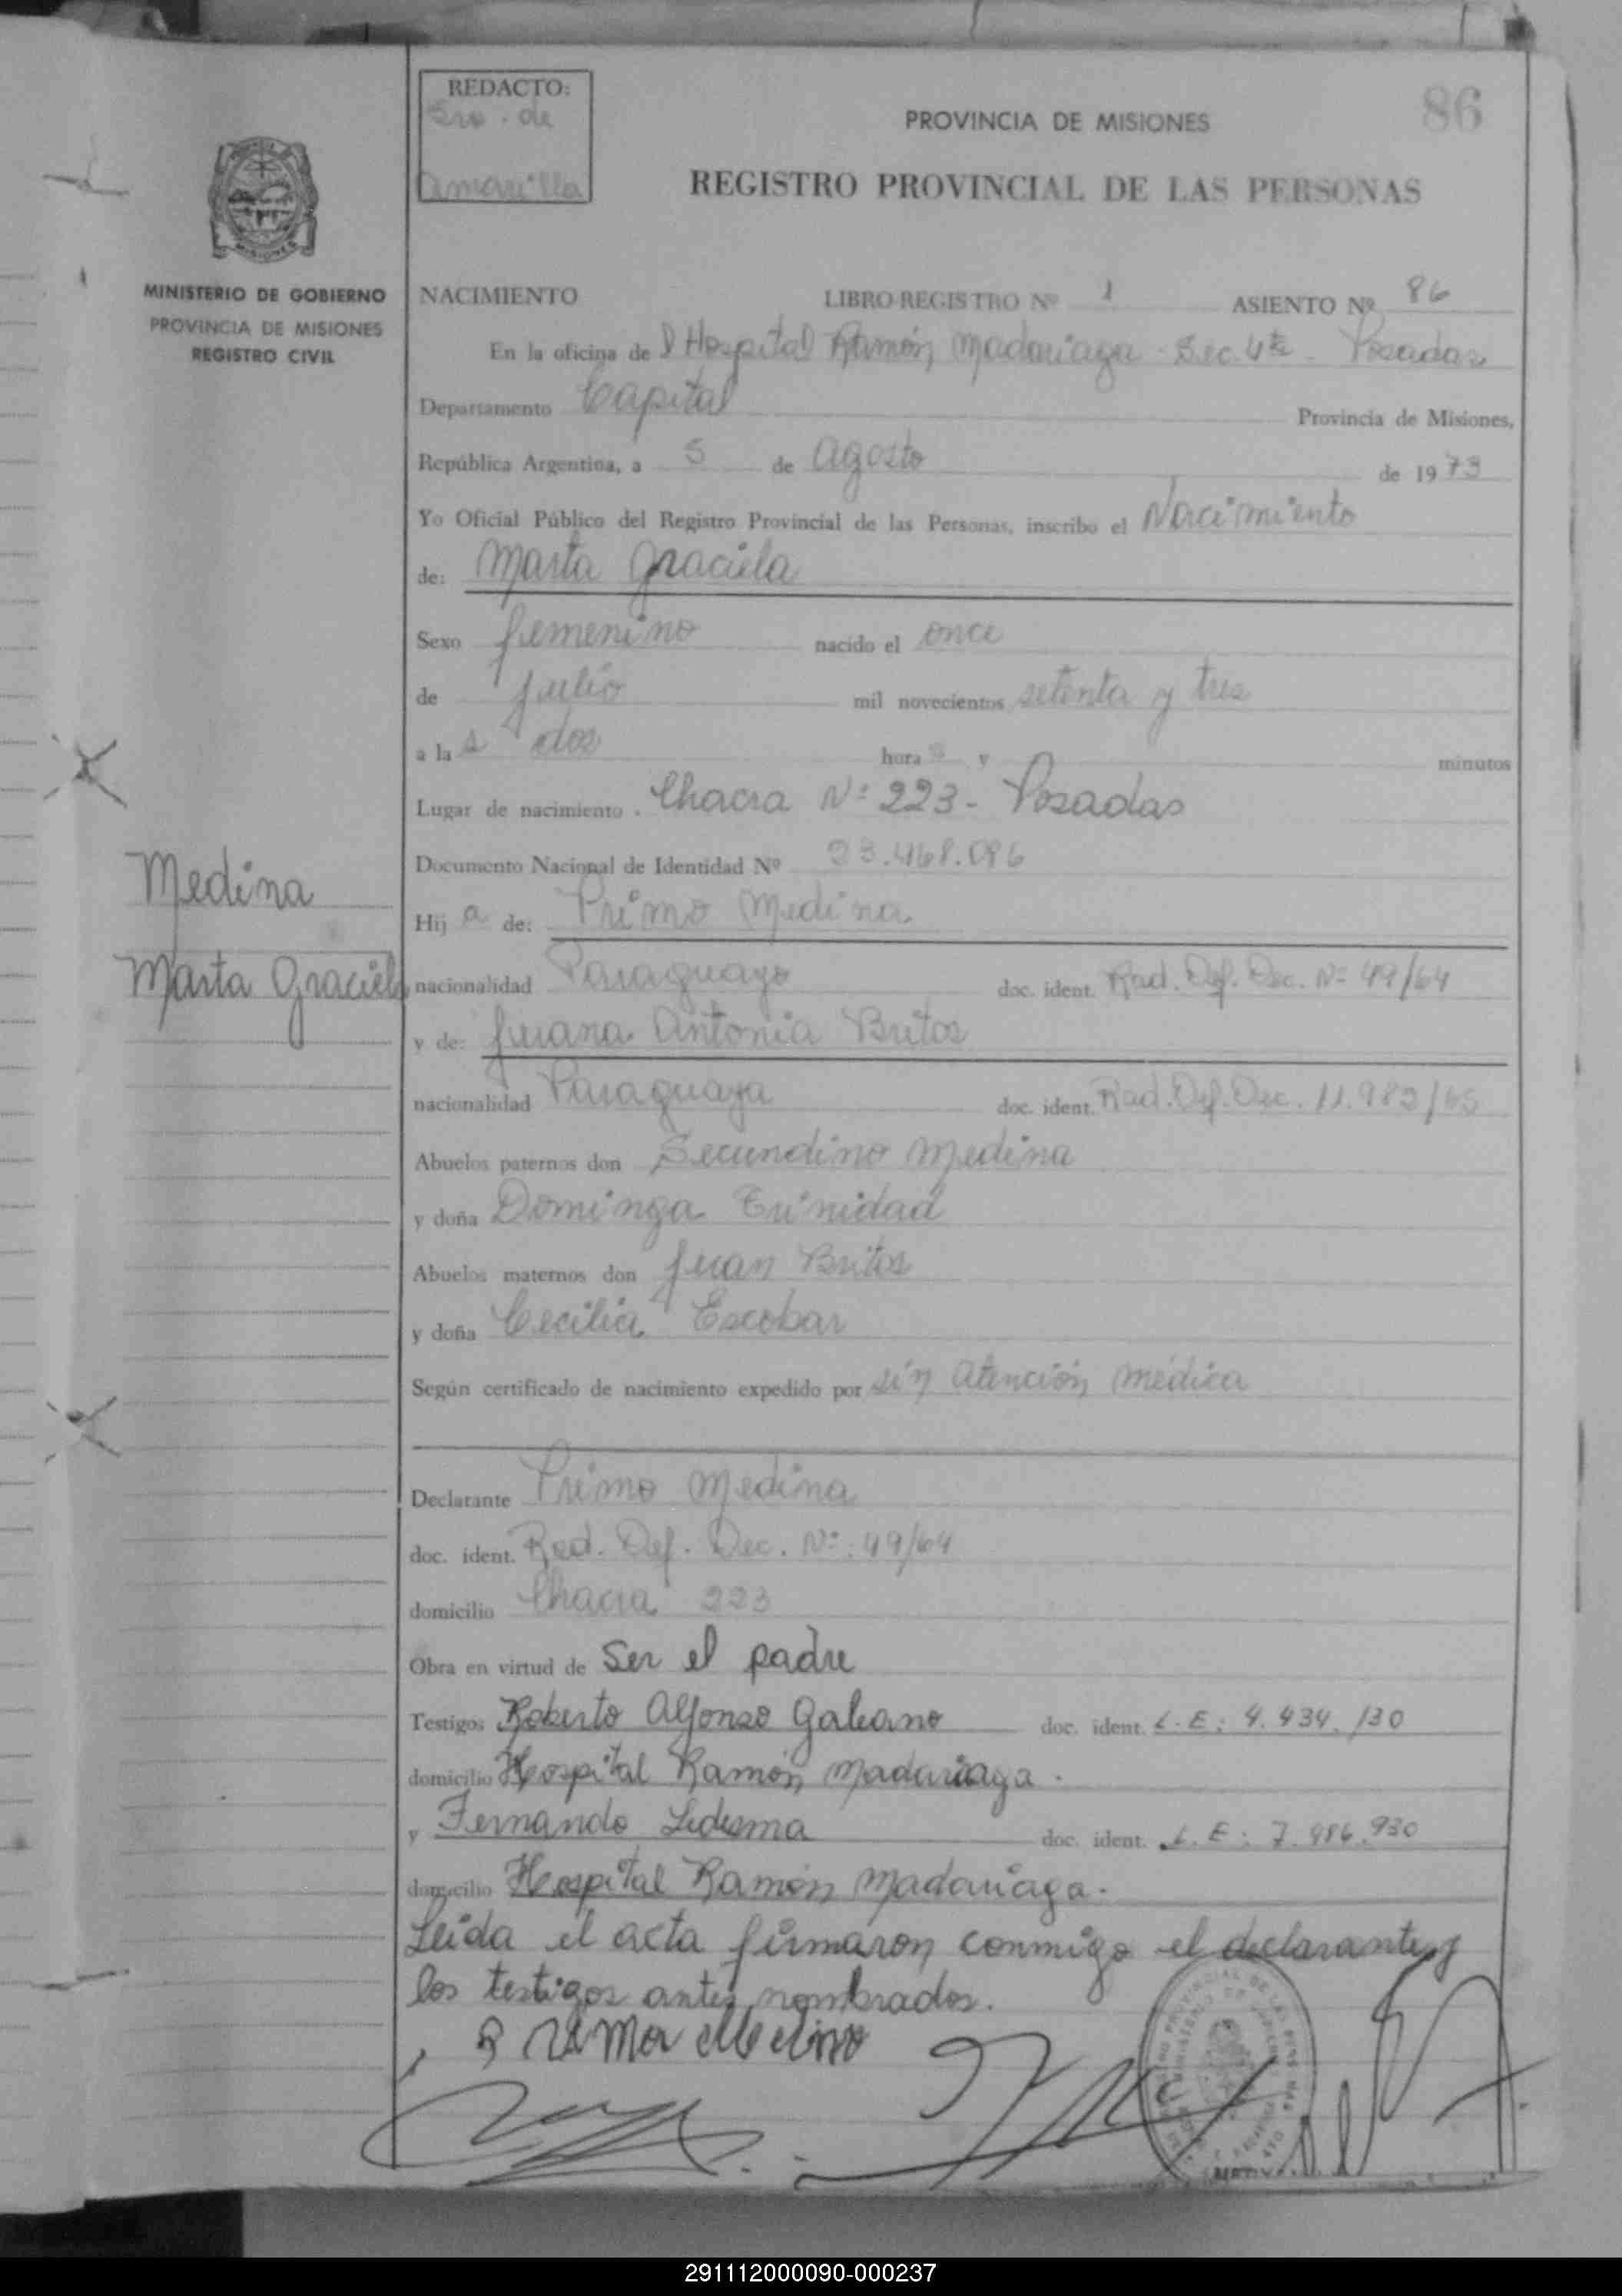 REDACTO:
Sra. de
Amarilla
PROVINCIA DE MISIONES
86
REGISTRO PROVINCIAL DE LAS PERSONAS
MISIONES
MINISTERIO DE GOBIERNO
PROVINCIA DE MISIONES
REGISTRO CIVIL
NACIMIENTO LIBRO REGISTRO Nº 1 ASIENTO Nº 86
En la oficina de l Hospital Ramón Madariaga - Sec. 4ta - Posadas
Departamento Capital Provincia de Misiones,
República Argentina, a 5 de Agosto de 1973
Yo Oficial Público del Registro Provincial de las Personas, inscribo el Nacimiento
de: Marta Graciela
Sexo femenino nacido el once
de julio mil novecientos setenta y tres
a la s dos hora s y minutos
Lugar de nacimiento . Chacra Nº 223 - Posadas
Documento Nacional de Identidad Nº 23.468.096
Medina
Hij a de: Primo Medina
Marta Graciela
nacionalidad Paraguayo doc. ident. Rad. Def. Dec. Nº 49/64
y de: Juana Antonia Britos
nacionalidad Paraguaya doc. ident. Rad. Def. Dec. 11.982/65
Abuelos paternos don Secundino Medina
y doña Dominga Trinidad
Abuelos maternos don Juan Britos
y doña Cecilia Escobar
Según certificado de nacimiento expedido por sin atención médica
Declarante Primo Medina
doc. ident. Rad. Def. Dec. Nº: 49/64
domicilio Chacra 223
Obra en virtud de Ser el padre
Testigos Roberto Alfonso Galeano doc. ident. L. E: 4.434.130
domicilio Hospital Ramón Madariaga.
y Fernando Ledesma doc. ident. L. E: 7.486.930
domicilio Hospital Ramón Madariaga.
Leida el acta firmaron conmigo el declarante y
los testigos antes nombrados.
291112000090-000237